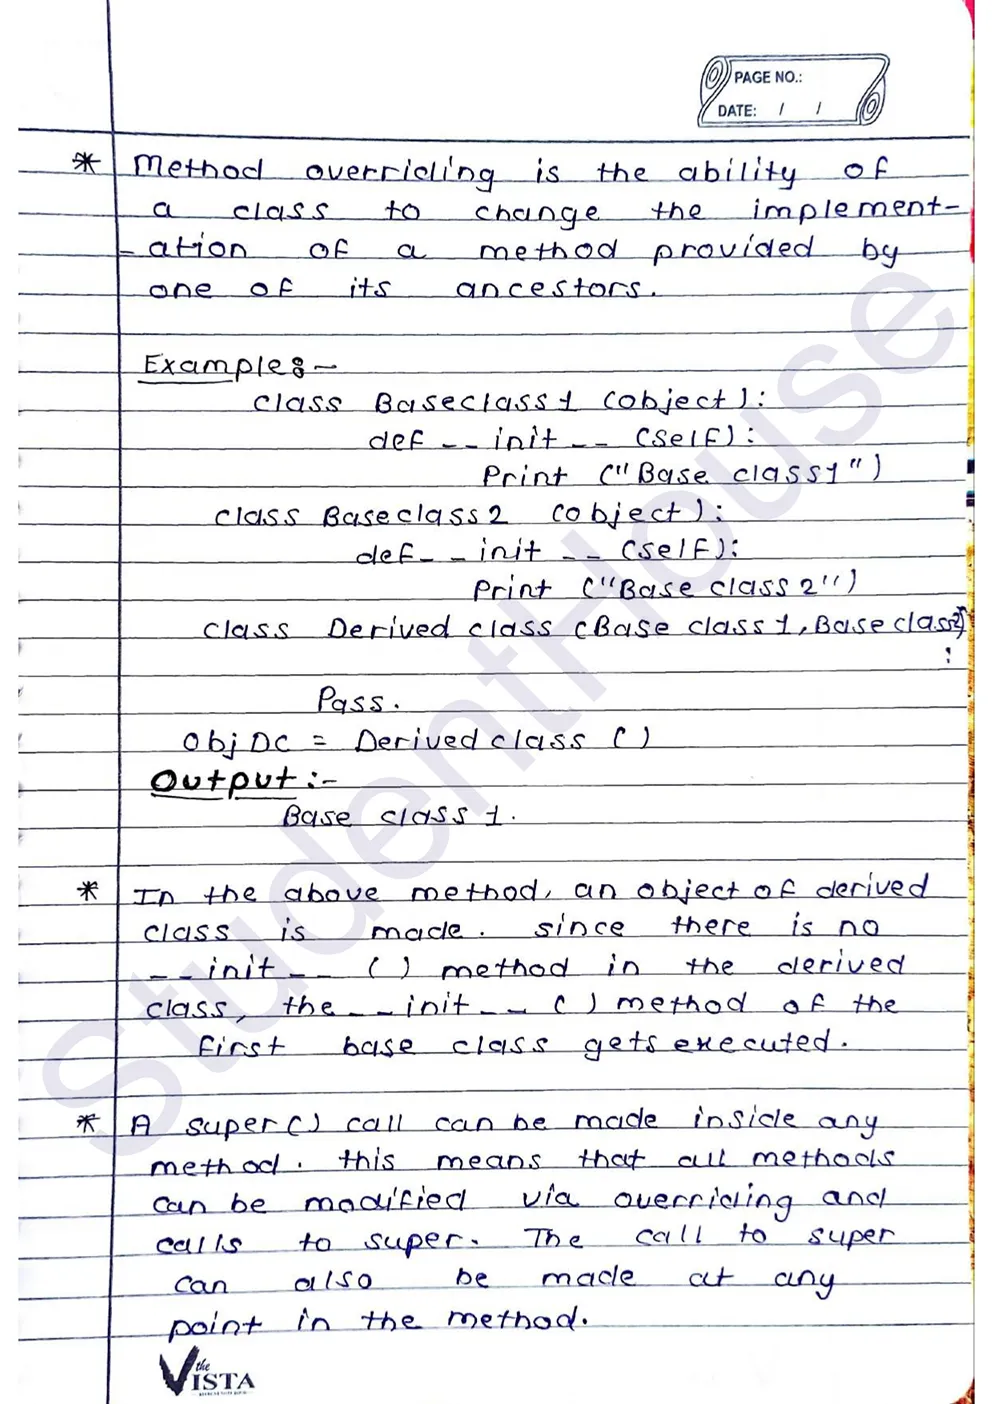 PAGE NO.:
DATE: / /
* Method overriding is the ability of
a class to change the implement-
-ation of a method provided by
one of its ancestors.
Example:-
class Baseclass1 (object):
def __init__ (self):
Print ("Base class1")
class Baseclass2 (object):
def __init__ (self):
Print ("Base class2")
class Derived class (Base class1, Base class2)
:
Pass.
Obj DC = Derived class ()
Output:-
Base class 1.
* In the above method, an object of derived
class is made. since there is no
__init__ () method in the derived
class, the __init__ () method of the
first base class gets executed.
* A super() call can be made inside any
method. this means that all methods
can be modified via overriding and
calls to super. The call to super
can also be made at any
point in the method.
the
VISTA
StudentHouse